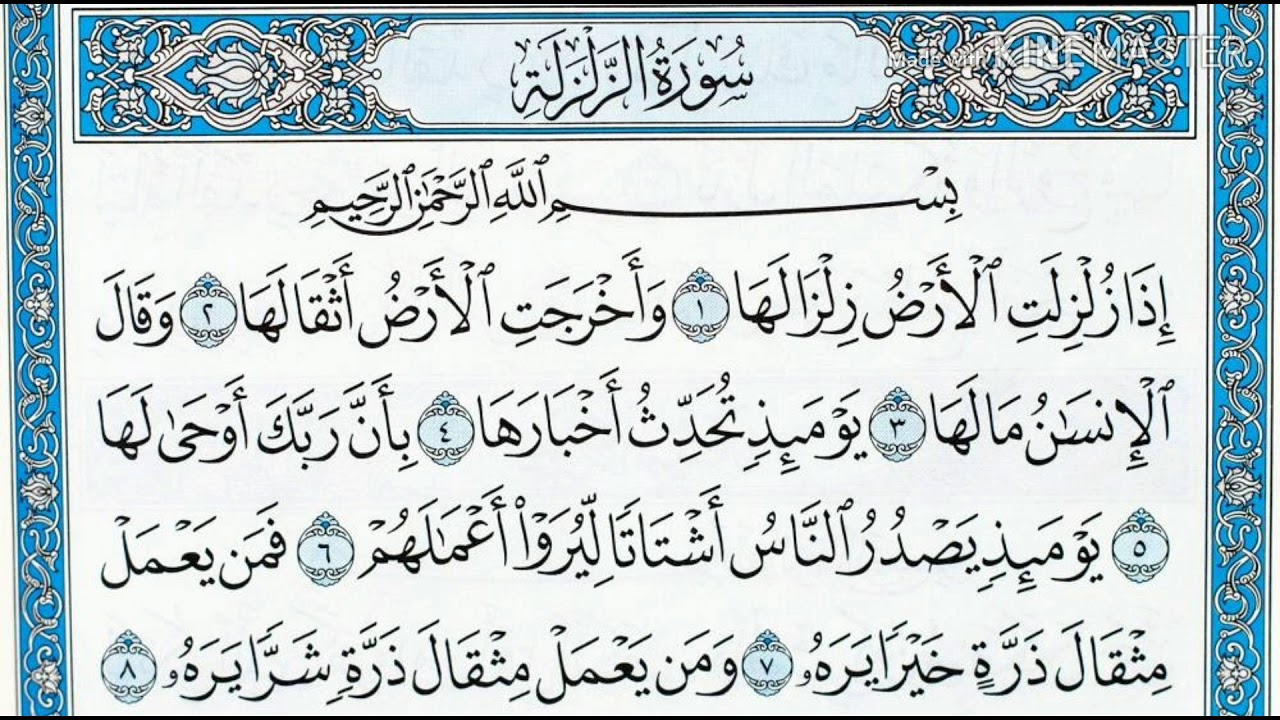 سُورَةُ الزَّلْزَلَةِ
Made with KINEMASTER
بِسْمِ ٱللَّهِ ٱلرَّحْمَٰنِ ٱلرَّحِيمِ
إِذَا زُلْزِلَتِ ٱلْأَرْضُ زِلْزَالَهَا ١ وَأَخْرَجَتِ ٱلْأَرْضُ أَثْقَالَهَا ٢ وَقَالَ
ٱلْإِنسَٰنُ مَا لَهَا ٣ يَوْمَئِذٍ تُحَدِّثُ أَخْبَارَهَا ٤ بِأَنَّ رَبَّكَ أَوْحَىٰ لَهَا
٥ يَوْمَئِذٍ يَصْدُرُ ٱلنَّاسُ أَشْتَاتًا لِّيُرَوْا۟ أَعْمَٰلَهُمْ ٦ فَمَن يَعْمَلْ
مِثْقَالَ ذَرَّةٍ خَيْرًا يَرَهُۥ ٧ وَمَن يَعْمَلْ مِثْقَالَ ذَرَّةٍ شَرًّا يَرَهُۥ ٨